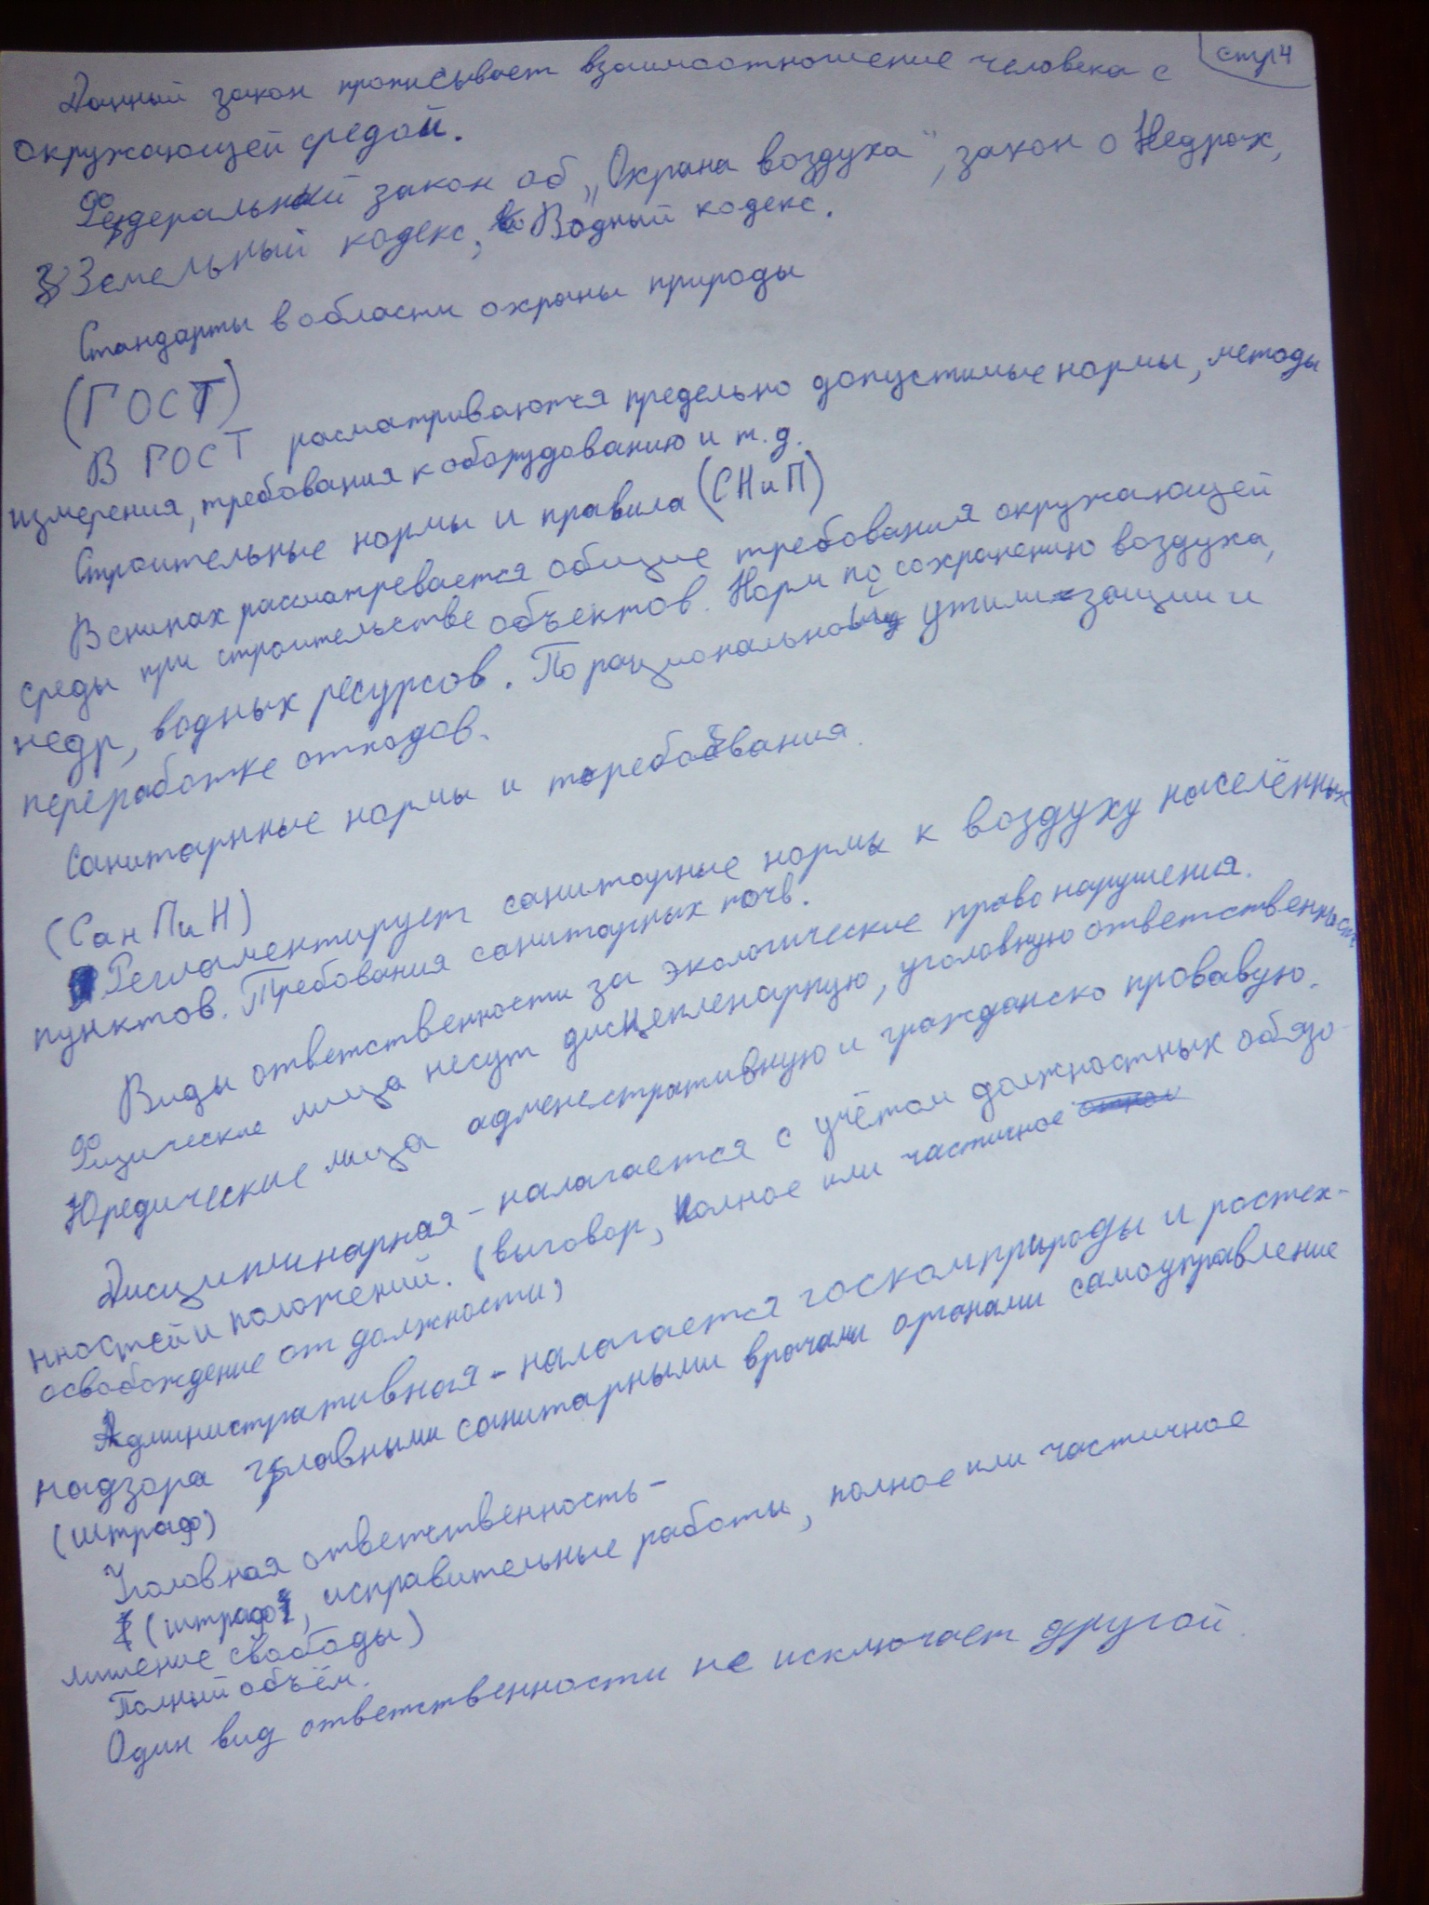 стр 4
Данный закон прописывает взаимоотношение человека с
окружающей средой.
Федеральный закон об „Охрана воздуха", закон о Недрах,
Земельный кодекс, Водный кодекс.
Стандарты в области охраны природы
(ГОСТ)
В ГОСТ расматриваются предельно допустимые нормы, методы
измерения, требования к оборудованию и т.д.
Строительные нормы и правила (СНиП)
В снипах рассматревается общие требования окружающей
среды при строительстве объектов. Норм по сохранению воздуха,
недр, водных ресурсов. По рациональной утилизации и
переработке отходов.
Санитарные нормы и требования.
(СанПиН)
Регламентирует санитарные нормы к воздуху населённых
пунктов. Требования санитарных почв.
Виды ответственности за экологические право нарушения.
Физические лица несут дисцепленарную, уголовную ответственность
Юредические лица админестративную и гражданско провавую.
Дисциплинарная – налагается с учётом должностных обяза-
нностей и положений. (выговор, полное или частичное
освобождение от должности)
Административная – налагается госкомприроды и ростех-
надзора главными санитарными врачами органами самоуправление
(штраф)
Уголовная ответственность –
(штраф, исправительные работы, полное или частичное
лишение свободы)
Полный объём.
Один вид ответственности не исключает другой.